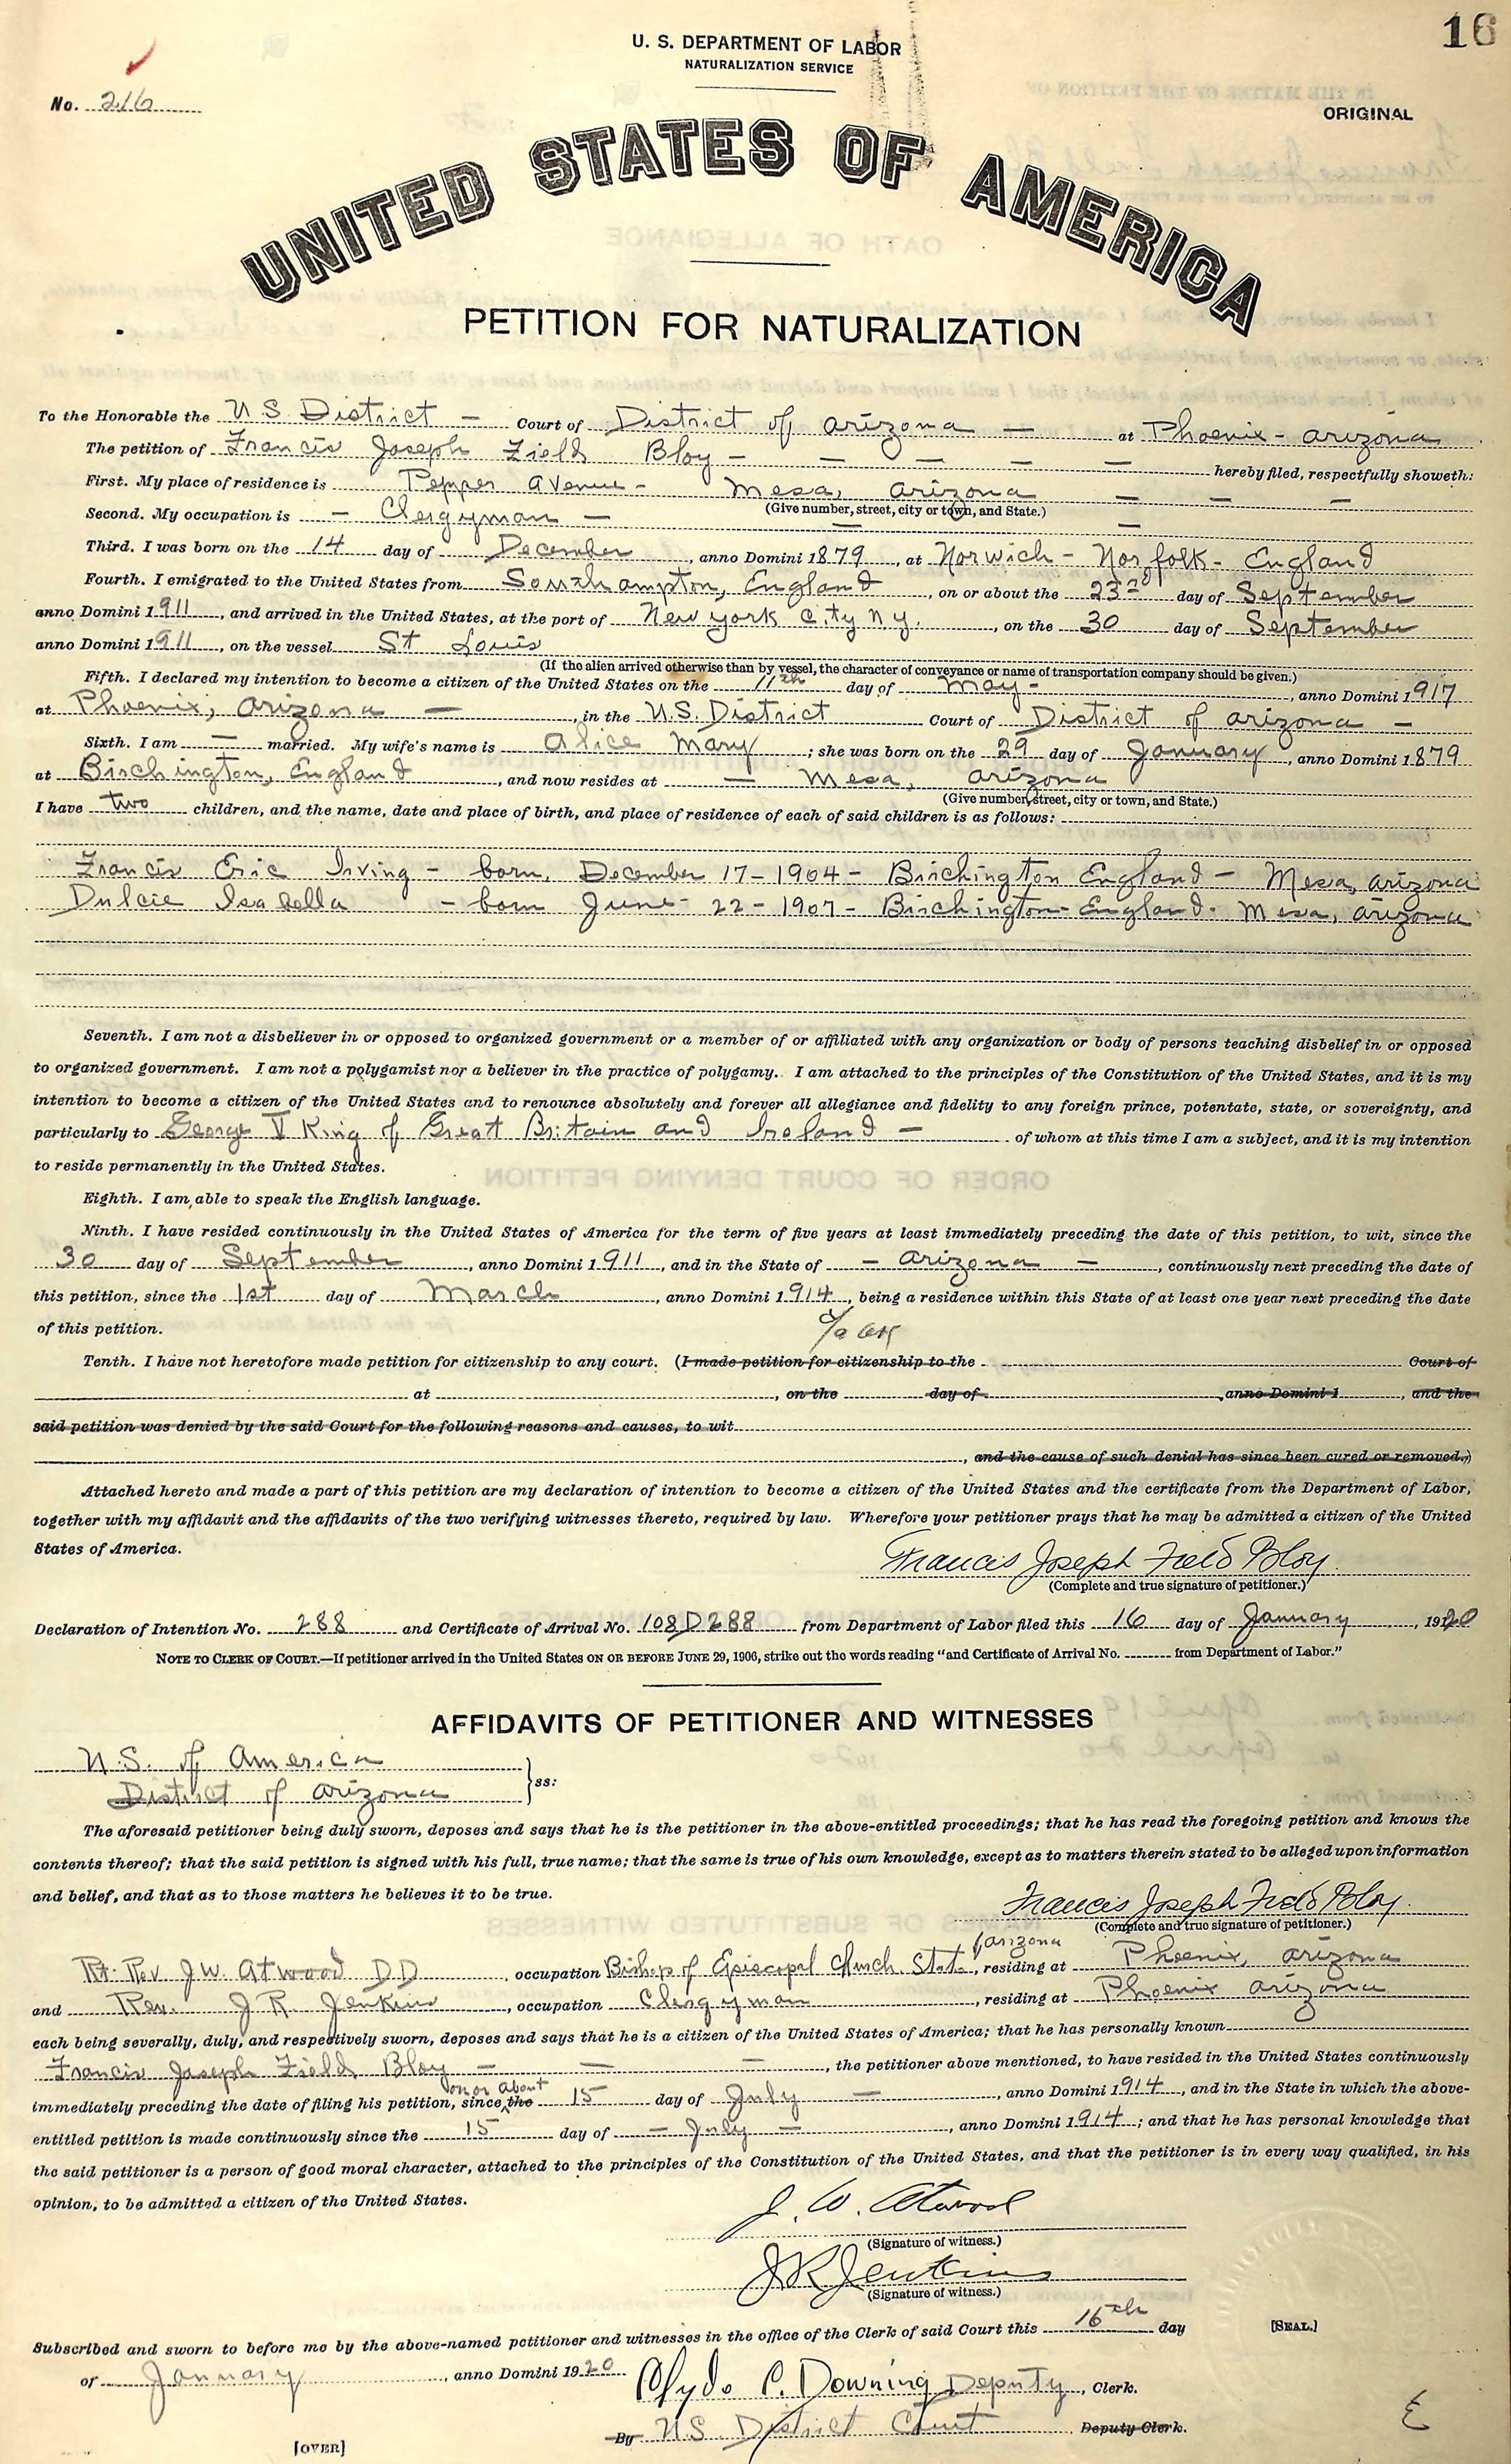 16
U. S. DEPARTMENT OF LABOR
NATURALIZATION SERVICE
No. 216
ORIGINAL
UNITED STATES OF AMERICA
PETITION FOR NATURALIZATION
To the Honorable the U.S District — Court of District of Arizona — at Phoenix - Arizona
The petition of Francis Joseph Field Bloy - — — — — hereby filed, respectfully showeth:
First. My place of residence is Pepper Avenue - Mesa, Arizona — — —
(Give number, street, city or town, and State.)
Second. My occupation is — Clergyman — — —
Third. I was born on the 14 day of December, anno Domini 1879, at Norwich - Norfolk - England
Fourth. I emigrated to the United States from Southampton, England, on or about the 23rd day of September
anno Domini 1911, and arrived in the United States, at the port of New York City N.Y., on the 30 day of September
anno Domini 1911, on the vessel St Louis
(If the alien arrived otherwise than by vessel, the character of conveyance or name of transportation company should be given.)
Fifth. I declared my intention to become a citizen of the United States on the 11th day of May -, anno Domini 1917
at Phoenix, Arizona —, in the U.S. District Court of District of Arizona —
Sixth. I am — married. My wife's name is Alice Mary; she was born on the 29 day of January, anno Domini 1879
at Birchington, England, and now resides at — Mesa, Arizona
(Give number, street, city or town, and State.)
I have two children, and the name, date and place of birth, and place of residence of each of said children is as follows:
Francis Eric Irving - born, December 17 - 1904 - Birchington England - Mesa, Arizona
Dulcie Isabella - born June - 22 - 1907 - Birchington - England - Mesa, Arizona
Seventh. I am not a disbeliever in or opposed to organized government or a member of or affiliated with any organization or body of persons teaching disbelief in or opposed
to organized government. I am not a polygamist nor a believer in the practice of polygamy. I am attached to the principles of the Constitution of the United States, and it is my
intention to become a citizen of the United States and to renounce absolutely and forever all allegiance and fidelity to any foreign prince, potentate, state, or sovereignty, and
particularly to George V King of Great Britain and Ireland — of whom at this time I am a subject, and it is my intention
to reside permanently in the United States.
Eighth. I am able to speak the English language.
Ninth. I have resided continuously in the United States of America for the term of five years at least immediately preceding the date of this petition, to wit, since the
30 day of September, anno Domini 1911, and in the State of — Arizona —, continuously next preceding the date of
this petition, since the 1st day of March, anno Domini 1914, being a residence within this State of at least one year next preceding the date
of this petition.
Tenth. I have not heretofore made petition for citizenship to any court. (I made petition for citizenship to the Court of
at , on the day of , anno Domini 1 , and the
said petition was denied by the said Court for the following reasons and causes, to wit
, and the cause of such denial has since been cured or removed.)
Attached hereto and made a part of this petition are my declaration of intention to become a citizen of the United States and the certificate from the Department of Labor,
together with my affidavit and the affidavits of the two verifying witnesses thereto, required by law. Wherefore your petitioner prays that he may be admitted a citizen of the United
States of America.
Francis Joseph Field Bloy
(Complete and true signature of petitioner.)
Declaration of Intention No. 288 and Certificate of Arrival No. 108D288 from Department of Labor filed this 16 day of January, 1920
NOTE TO CLERK OF COURT.—If petitioner arrived in the United States ON OR BEFORE JUNE 29, 1906, strike out the words reading "and Certificate of Arrival No. from Department of Labor."
AFFIDAVITS OF PETITIONER AND WITNESSES
U.S. of America
District of Arizona
ss:
The aforesaid petitioner being duly sworn, deposes and says that he is the petitioner in the above-entitled proceedings; that he has read the foregoing petition and knows the
contents thereof; that the said petition is signed with his full, true name; that the same is true of his own knowledge, except as to matters therein stated to be alleged upon information
and belief, and that as to those matters he believes it to be true.
Francis Joseph Field Bloy
(Complete and true signature of petitioner.)
Rt. Rev. J W. Atwood D D, occupation Bishop of Episcopal Church State, Arizona, residing at Phoenix, Arizona
and Rev. J. R. Jenkins, occupation Clergyman, residing at Phoenix Arizona
each being severally, duly, and respectively sworn, deposes and says that he is a citizen of the United States of America; that he has personally known
Francis Joseph Field Bloy — — —, the petitioner above mentioned, to have resided in the United States continuously
immediately preceding the date of filing his petition, since on or about the 15 day of July —, anno Domini 1914, and in the State in which the above-
entitled petition is made continuously since the 15 day of — July —, anno Domini 1914; and that he has personal knowledge that
the said petitioner is a person of good moral character, attached to the principles of the Constitution of the United States, and that the petitioner is in every way qualified, in his
opinion, to be admitted a citizen of the United States.
J. W. Atwood
(Signature of witness.)
J R Jenkins
(Signature of witness.)
Subscribed and sworn to before me by the above-named petitioner and witnesses in the office of the Clerk of said Court this 16th day
[SEAL.]
of January, anno Domini 1920 Clyde C. Downing Deputy, Clerk.
By U.S. District Court Deputy Clerk.
[OVER]